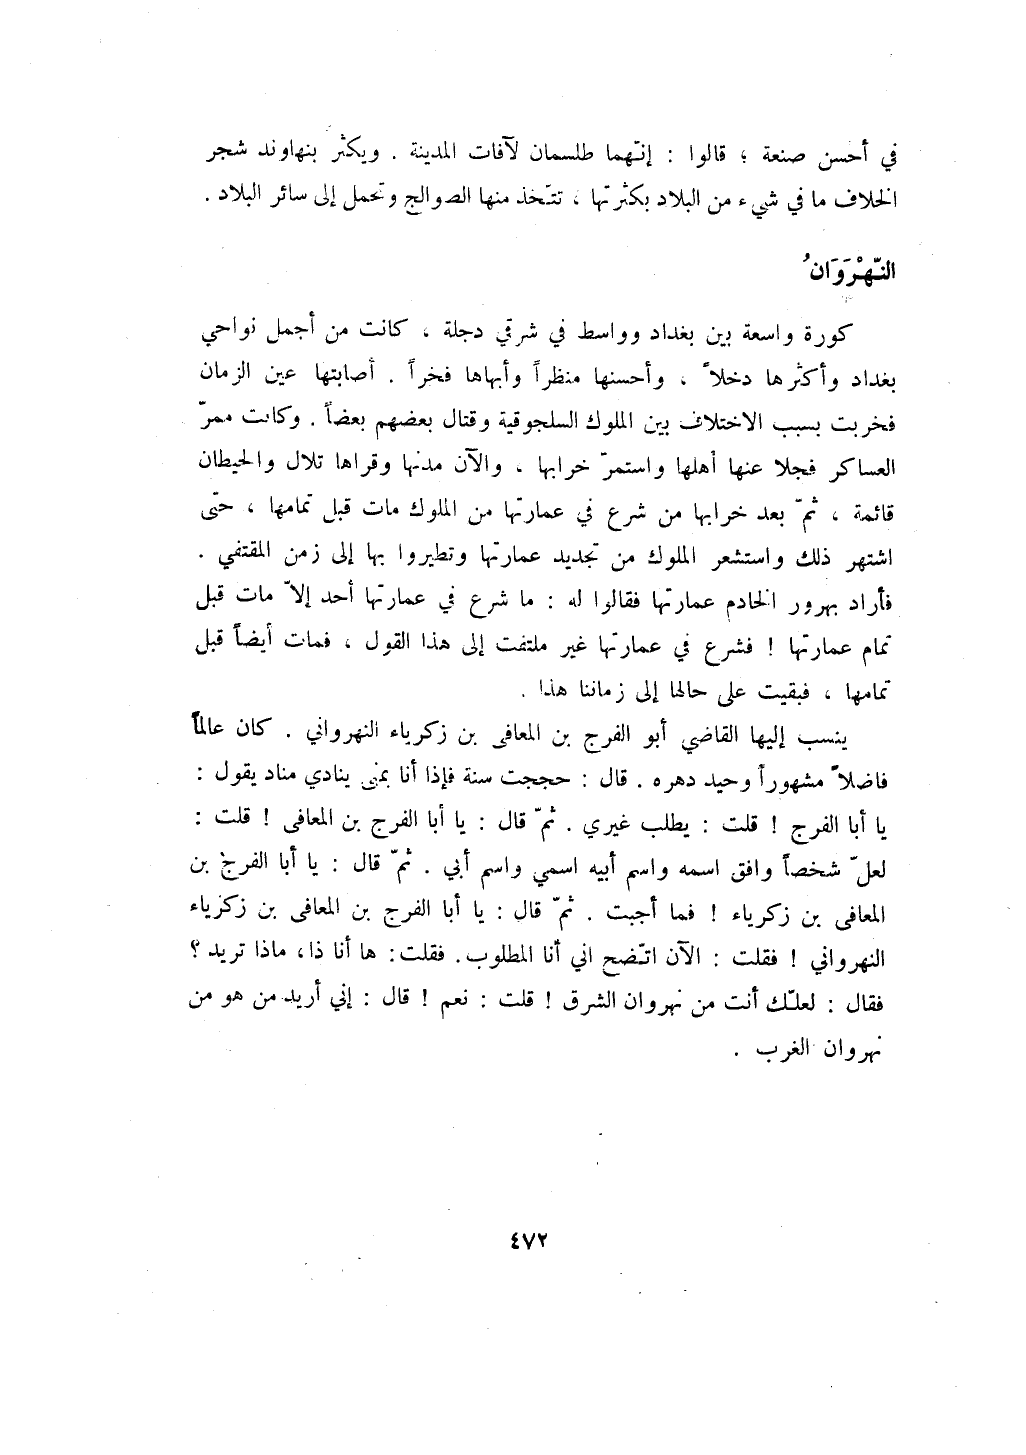 في أحسن صنعة ؛ قالوا : إنّهما طلسمان لآفات المدينة . ويكثر بنهاوند شجر
الخلاف ما في شيء من البلاد بكثرتها ، تتّخذ منها الصوالج وتحمل إلى سائر البلاد .
النّهْرَوَانُ
كورة واسعة بين بغداد وواسط في شرقي دجلة ، كانت من أجمل نواحي
بغداد وأكثرها دخلاً ، وأحسنها منظراً وأبهاها فخراً . أصابتها عين الزمان
فخربت بسبب الاختلاف بين الملوك السلجوقية وقتال بعضهم بعضاً . وكانت ممرّ
العساكر فجلا عنها أهلها واستمرّ خرابها ، والآن مدنها وقراها تلال والحيطان
قائمة ، ثمّ بعد خرابها من شرع في عمارتها من الملوك مات قبل تمامها ، حتّى
اشتهر ذلك واستشعر الملوك من تجديد عمارتها وتطيروا بها إلى زمن المقتفي .
فأراد بهرور الخادم عمارتها فقالوا له : ما شرع في عمارتها أحد إلاّ مات قبل
تمام عمارتها ! فشرع في عمارتها غير ملتفت إلى هذا القول ، فمات أيضاً قبل
تمامها ، فبقيت على حالها إلى زماننا هذا .
ينسب إليها القاضي أبو الفرج بن المعافى بن زكرياء النهرواني . كان عالماً
فاضلاً مشهوراً وحيد دهره . قال : حججت سنة فإذا أنا بمنى ينادي مناد يقول :
يا أبا الفرج ! قلت : يطلب غيري . ثمّ قال : يا أبا الفرج بن المعافى ! قلت :
لعلّ شخصاً وافق اسمه واسم أبيه اسمي واسم أبي . ثمّ قال : يا أبا الفرج بن
المعافى بن زكرياء ! فما أجبت . ثمّ قال : يا أبا الفرج بن المعافى بن زكرياء
النهرواني ! فقلت : الآن اتّضح اني أنا المطلوب. فقلت: ها أنا ذا، ماذا تريد ؟
فقال : لعلّك أنت من نهروان الشرق ! قلت : نعم ! قال : إني أريد من هو من
نهروان الغرب .
٤٧٢